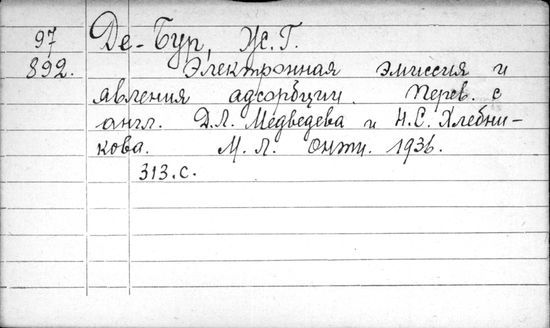 97 Де-Бур, Ж.Г.
892. Электронная эмиссия и
явления адсорбции. Перев. с
англ. Д.Л. Медведева и Н.С. Хлебни-
кова. М.Л. ОНТИ. 1936.
313.с.